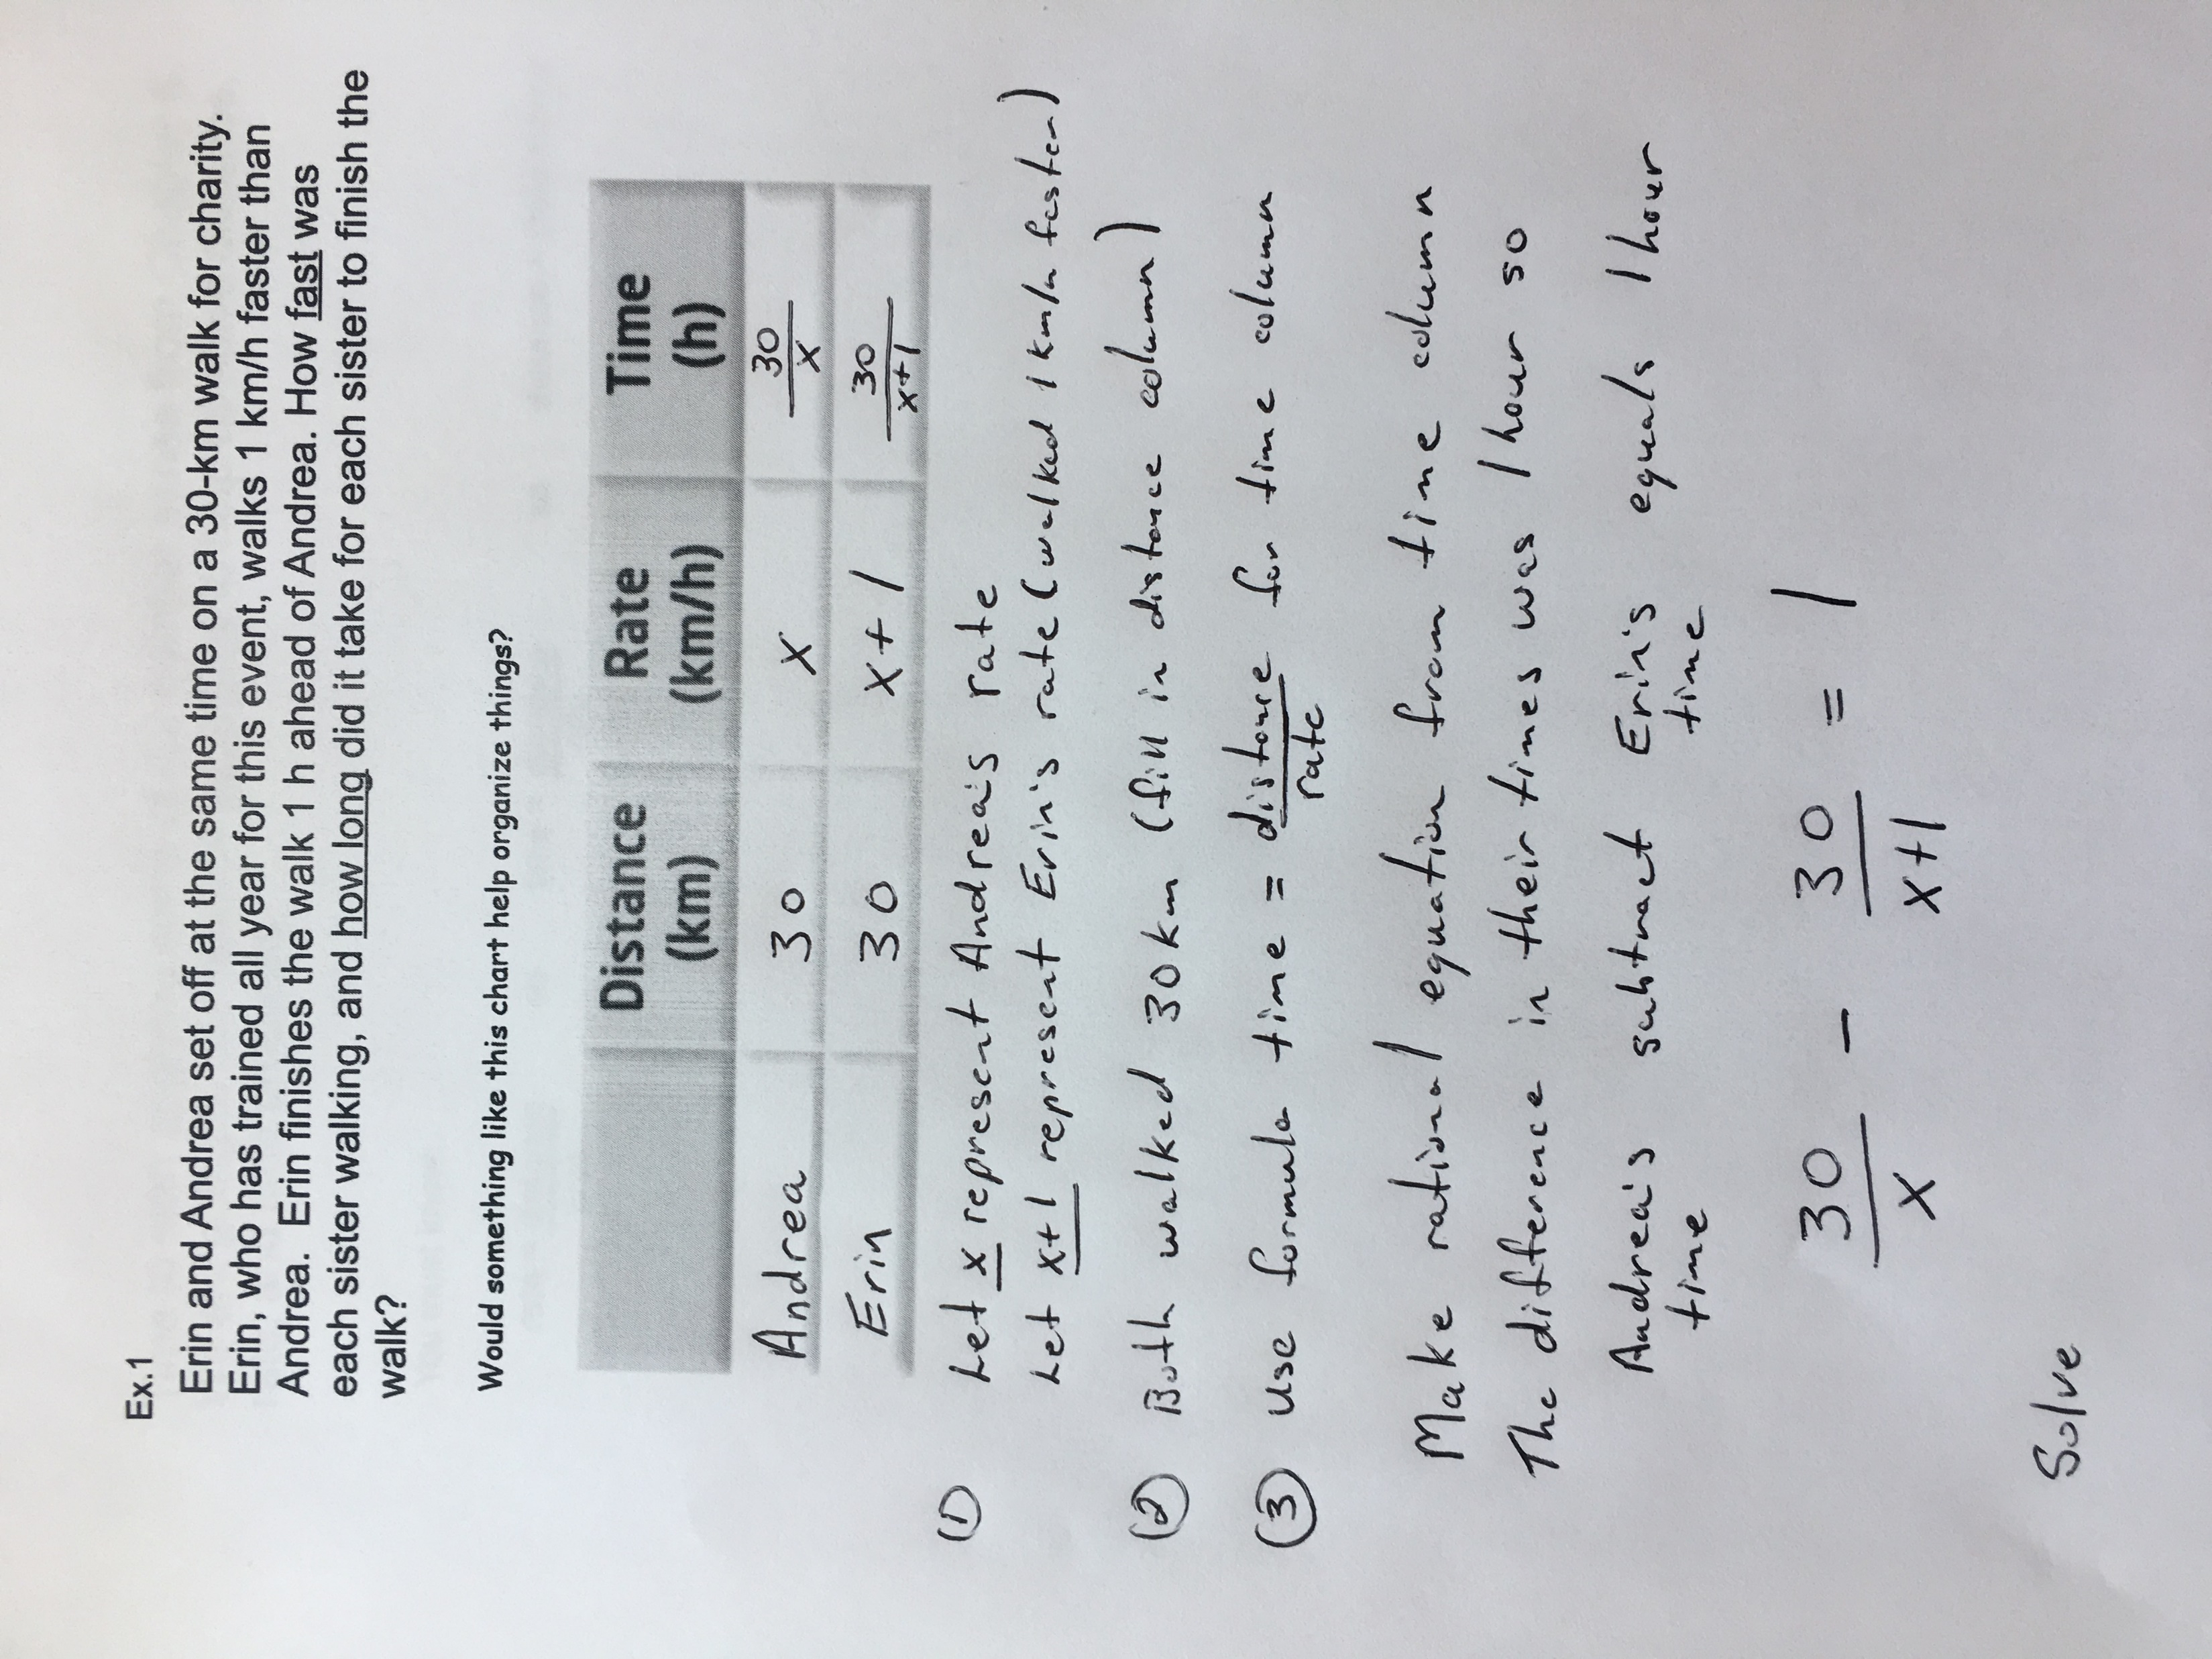 Ex.1
Erin and Andrea set off at the same time on a 30-km walk for charity.
Erin, who has trained all year for this event, walks 1 km/h faster than
Andrea. Erin finishes the walk 1 h ahead of Andrea. How fast was
each sister walking, and how long did it take for each sister to finish the
walk?
Would something like this chart help organize things?
Distance (km) Rate (km/h) Time (h)
Andrea 30 x 30/x
Erin 30 x+1 30/x+1
① Let x represent Andrea's rate
Let x+1 represent Erin's rate (walked 1 km/h faster)
② Both walked 30 km (fill in distance column)
③ use formula time = distance/rate for time column
Make rational equation from time column
The difference in their times was 1 hour so
Andrea's time subtract Erin's time equals 1 hour
30/x - 30/x+1 = 1
Solve